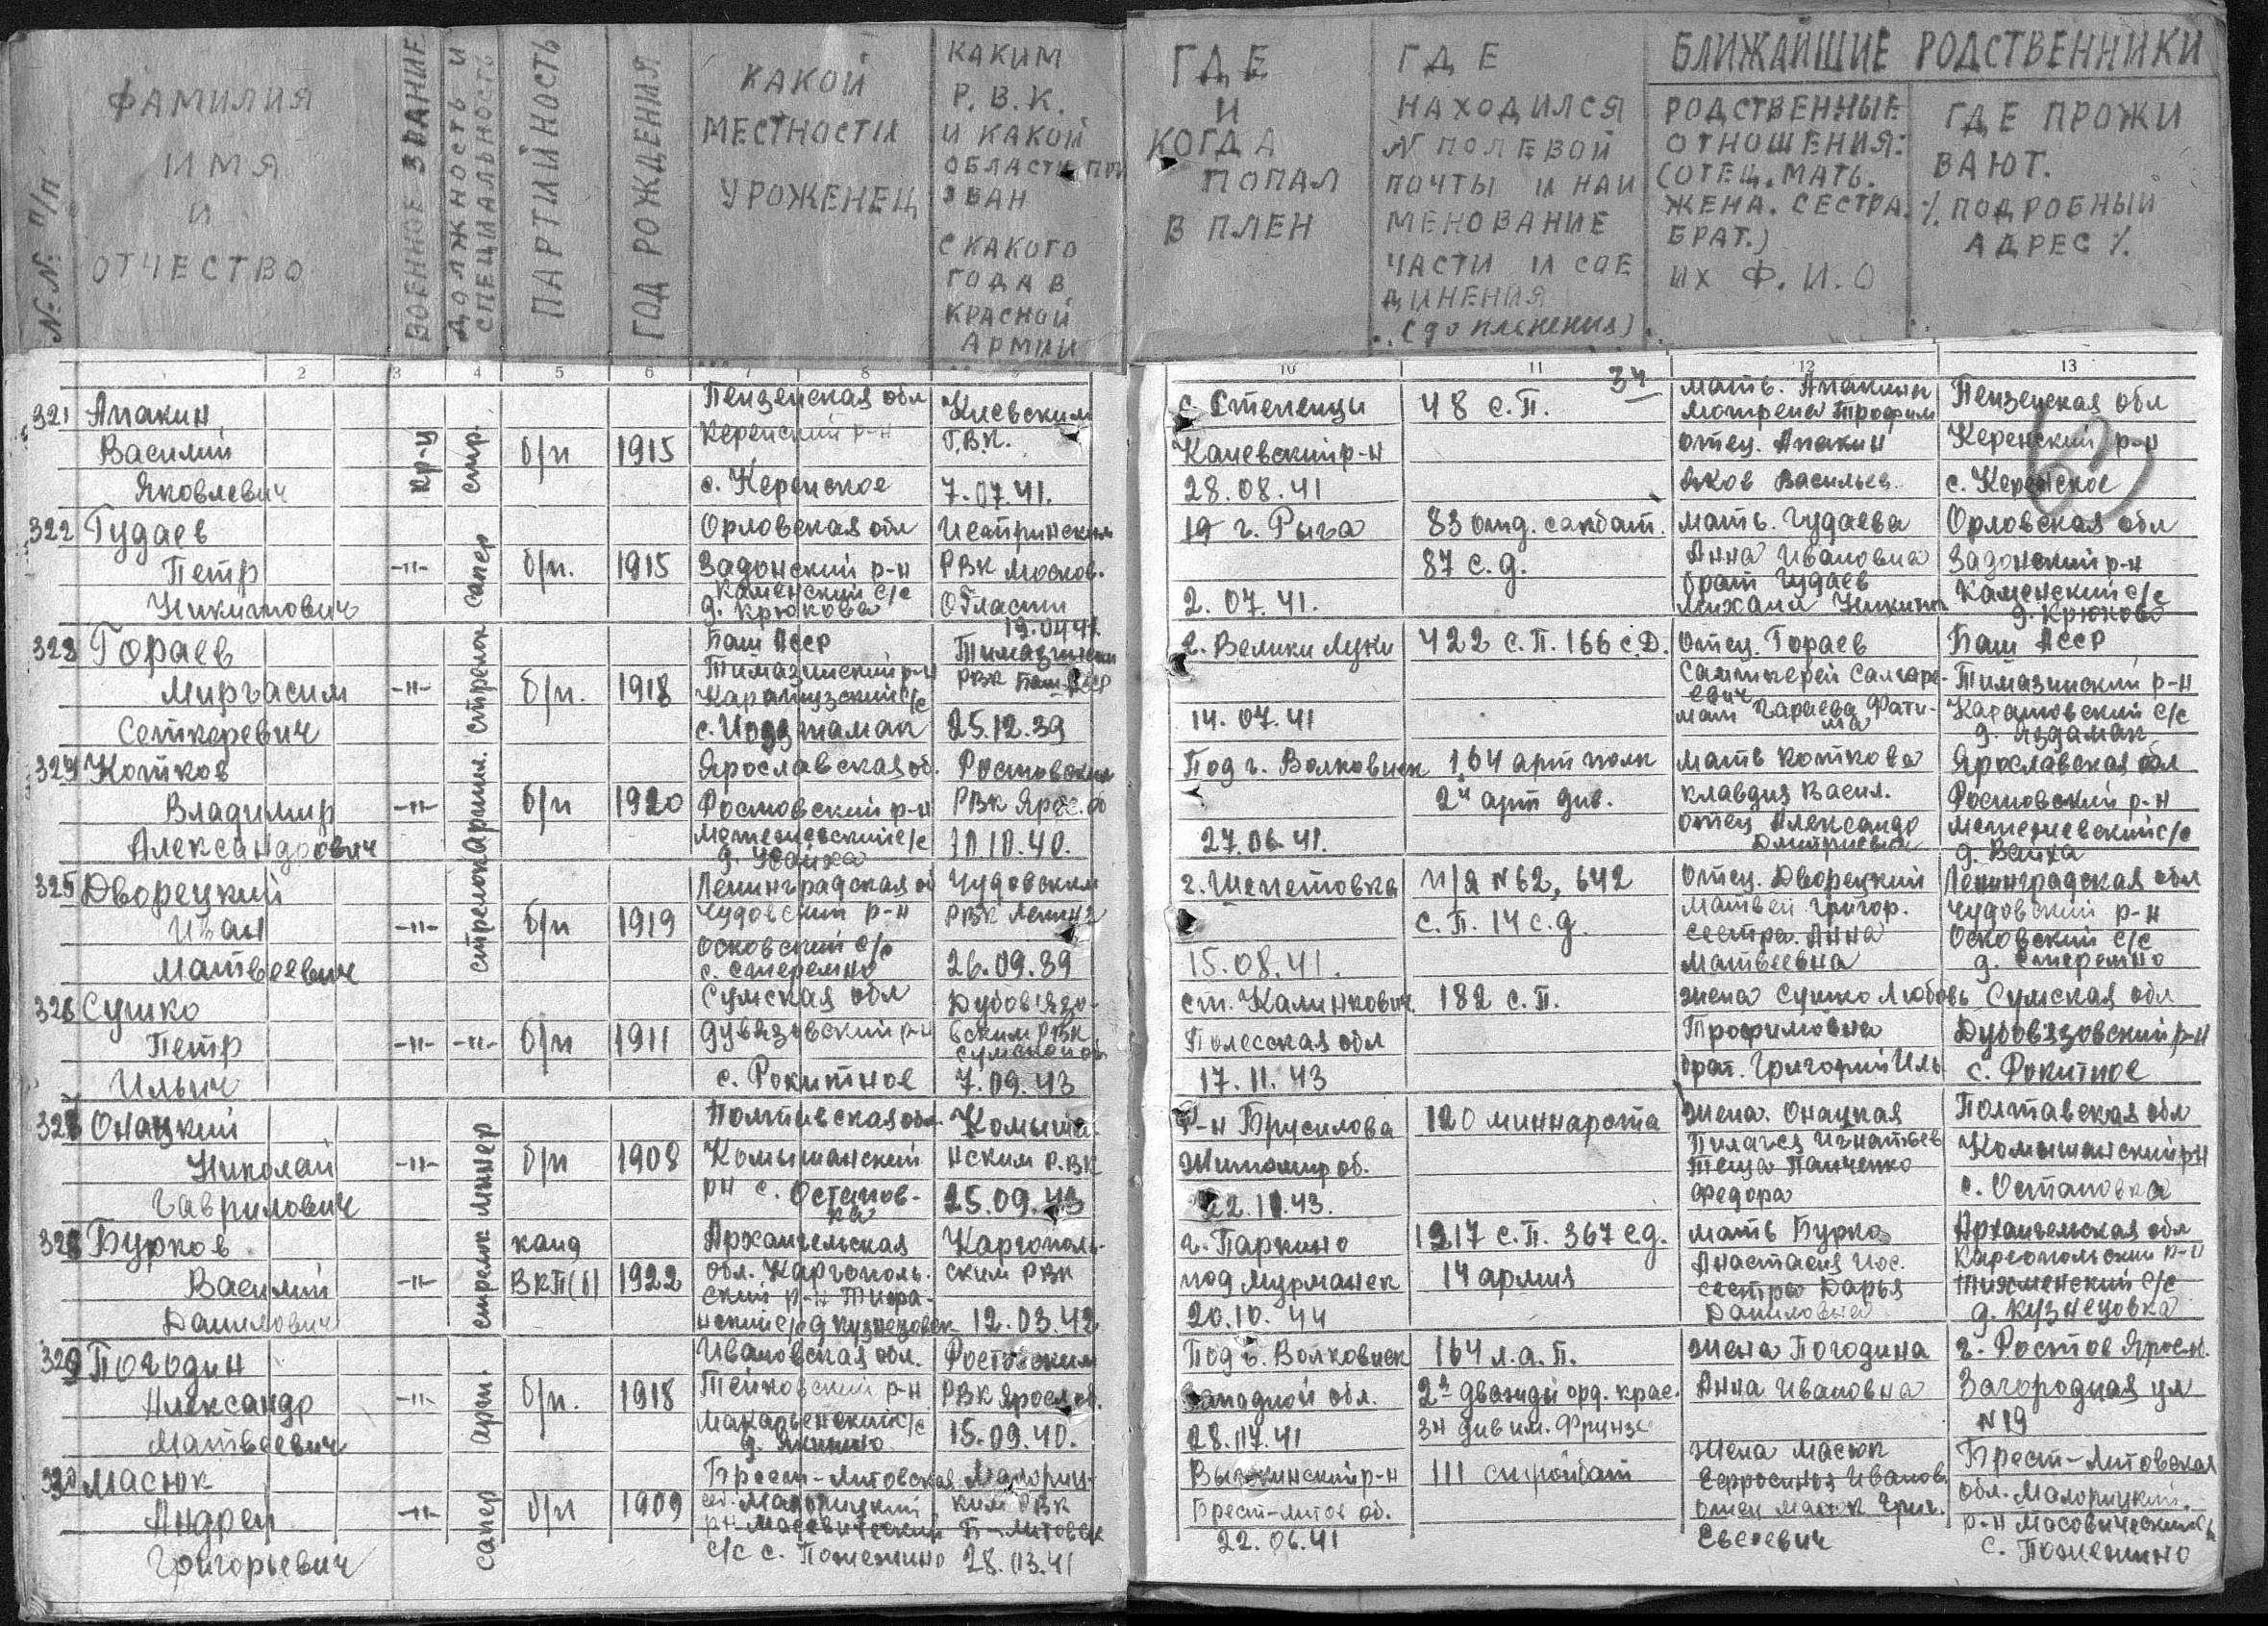 №№ п/п
ФАМИЛИЯ
ИМЯ
И
ОТЧЕСТВО
ВОЕННОЕ ЗВАНИЕ
ДОЛЖНОСТЬ И
СПЕЦИАЛЬНОСТЬ
ПАРТИЙНОСТЬ
ГОД РОЖДЕНИЯ
КАКОЙ
МЕСТНОСТИ
УРОЖЕНЕЦ
КАКИМ
Р.В.К.
И КАКОЙ
ОБЛАСТИ ПРИ
ЗВАН
С КАКОГО
ГОДА В
КРАСНОЙ
АРМИИ
ГДЕ
И
КОГДА
ПОПАЛ
В ПЛЕН
ГДЕ
НАХОДИЛСЯ
N ПОЛЕВОЙ
ПОЧТЫ И НАИ
МЕНОВАНИЕ
ЧАСТИ И СОЕ
ДИНЕНИЯ
(до пленения)
БЛИЖАЙШИЕ РОДСТВЕННИКИ
РОДСТВЕННЫЕ
ОТНОШЕНИЯ:
(ОТЕЦ. МАТЬ.
ЖЕНА. СЕСТРА.
БРАТ.)
ИХ Ф.И.О
ГДЕ ПРОЖИ
ВАЮТ.
% ПОДРОБНЫЙ
АДРЕС %
2 3 4 5 6 7 8
10 11 12 13
34
321 Апакин
Василий
Яковлевич
кр-ц
стр.
б/п
1915
Пензенская обл
Керенский р-н
с. Керенское
Киевским
Г.В.К.
7.07.41.
с. Степенци
Каневский р-н
28.08.41
48 с.п.
мать. Апакина
Матрена Трофим
отец. Апакин
Яков Васильев.
Пензенская обл
Керенский р-н
с. Керенское
322 Гудаев
Петр
Никитович
-"-
сапер
б/п.
1915
Орловская обл
Задонский р-н
Каменский с/с
д. Крюкова
Истринским
РВК Москов.
Области
19 г. Рыга
2.07.41.
83 отд. сапбат.
87 с.д.
мать. Гудаева
Анна Ивановна
брат Гудаев
Михаил Никит
Орловская обл
Задонский р-н
Каменский с/с
д. Крюково
323 Гораев
Миргасим
Сеткеревич
-"-
стрелок
б/п.
1918
Баш АССР
Тимазинский р-н
19.04.41.
Тимазински
РВК Баш АССР
25.12.39
г. Велики Луки
14.07.41
422 с.п. 166 с.д.
Отец. Гораев
евич
мат Гараева Фати-
ма
Баш АССР
Тимазинский р-н
с/с
д. Яздамак
324 Котков
Владимир
Александрович
-"-
артил.
б/п
1920
Ярославская об.
Ростовский р-н
с/с
Ростовским
РВК Ярос. об
10.10.40.
Под г. Волковиск
27.06.41.
164 арт полк
2й арт див.
мать Коткова
клавдия Васил.
отец Александр
Дмитриевич
Ярославская обл
Ростовский р-н
с/с
д. Вайха
325 Дворецкий
Иван
Матвеевич
-"-
стрелок
б/п
1919
Ленинградская об
Чудовский р-н
Осковский с/с
с. Стеремно
Чудовским
РВК Ленинг
26.09.39
г. Шепетовка
15.08.41.
п/я N62, 642
с.п. 14 с.д.
Отец. Дворецкий
Матвей Григор.
сестра. Анна
Матвеевна
Ленинградская обл
Чудовский р-н
Осковский с/с
д. Стеремно
326 Сушко
Петр
Ильич
-"-
-"-
б/п
1911
Сумская обл
дувязовский р-н
с. Рокитное
Дубовязо-
вским РВК
сумской об
7.09.43
ст. Калинкович
Полесская обл
17.11.43
182 с.п.
жена Сушко Любовь
Трофимовна
брат. Григорий Иль.
Сумская обл
Дубовязовский р-н
с. Рокитное
327 Онацкий
Николай
Гаврилович
-"-
минер
б/п
1908
Полтавская обл.
Комышанский
рн с. Остапов-
ка
Комыша-
нским р.ВК
25.09.43
Р-н Брусилова
Житомир об.
22.11.43.
120 минн рота
жена. Онацкая
Пилагея Игнатьев
Теща Панченко
Федора
Полтавская обл
Комышанский рн
с. Остановка
328 Бурков
Василий
Данилович
-"-
стрелок
канд
ВКП(б)
1922
Архангельская
обл. Каргополь-
ский р-н
д Кузнецовск
Каргополь-
ским РВК
12.03.42
г. Паркино
под Мурманск
20.10.44
1217 с.п. 367 с.д.
14 армия
мать Бурко
Анастасия Иос.
сестра Дарья
Даниловна
Архангельская обл
Каргопольский р-н
Тихменский с/с
д. Кузнецовка
329 Погодин
Александр
Матвеевич
-"-
арт.
б/п.
1918
Ивановская обл.
Тейковский р-н
Макарьенский с/с
д. Якимно
Ростовским
РВК Яросл об.
15.09.40.
Под г. Волковиск
Западной обл.
28.07.41
164 л.а.п.
2я дважды орд. крас.
зн див им. Фрунзе
жена Погодина
Анна Ивановна
г. Ростов Ярос.
Загородная ул
N 19
330 Масюк
Андрей
Григорьевич
-"-
сапер
б/п
1909
Брест-Литовская
об. Малорицкий
рн Масевический
с/с с. Пожежино
Малориц-
ким РВК
Б-Литовск
28.03.41
Брест-Литов об.
22.06.41
111 стройбат
жена Масюк
Ефросиния Иванов.
отец Масюк Григ.
Евсеевич
Брест-Литовская
обл. Малорицкий.
р-н Масовический
с. Пожежино